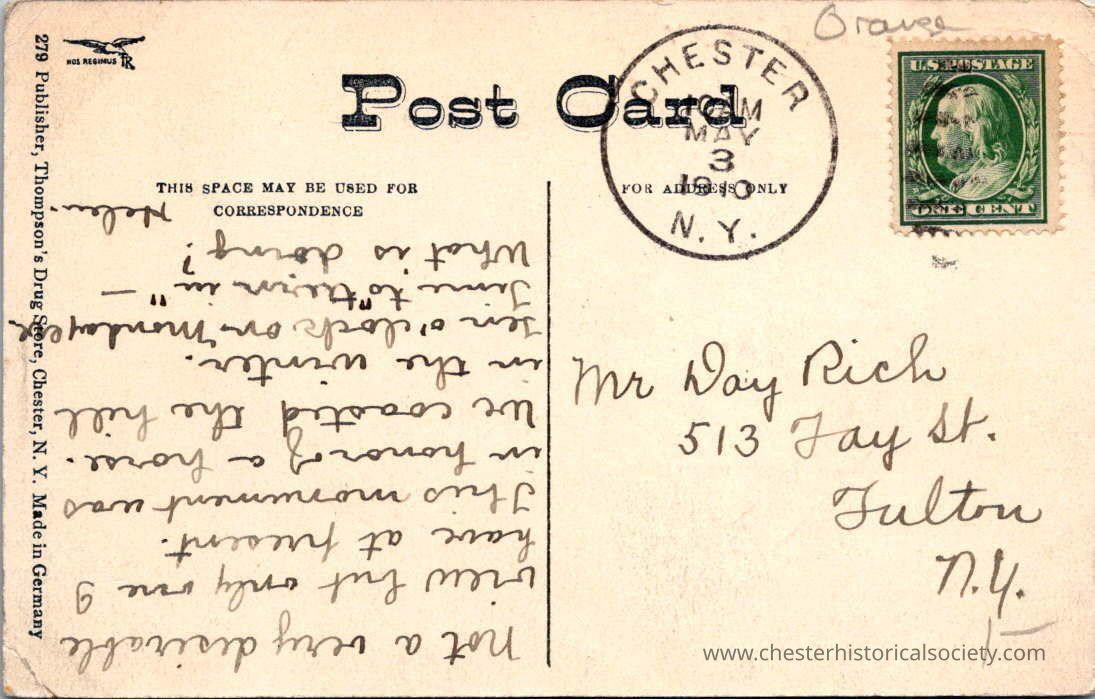 Orange
279 Publisher, Thompson's Drug Store, Chester, N. Y. Made in Germany
HOS REGIMUS
Post Card
CHESTER
MAY
3
1910
N. Y.
U.S. POSTAGE
ONE CENT
THIS SPACE MAY BE USED FOR
CORRESPONDENCE
FOR ADDRESS ONLY
Not a very desirable
view but only one I
have at present.
This monument was
in honor of a horse.
We coasted the hill
in the winter.
Ten o'clock on Monday
Time to "turn in" —
What is doing?
Helen.
Mr Day Rich
513 Fay St.
Fulton
N.Y.
www.chesterhistoricalsociety.com